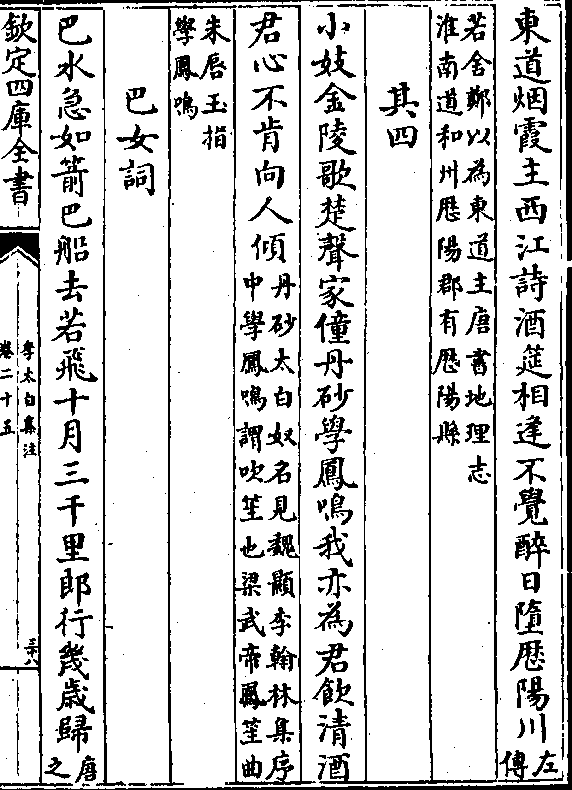 東道烟霞主西江詩酒筵相逢不覺醉日墮歴陽川左傳
若舍鄭以為東道主唐書地理志
淮南道和州歴陽郡有歴陽縣
其四
小妓金陵歌楚聲家僮丹砂學鳳鳴我亦為君飲清酒
君心不肯向人傾丹砂太白奴名見魏顥李翰林集序
中學鳳鳴謂吹笙也梁武帝鳳笙曲
朱唇玉指
學鳳鳴
巴女詞
巴水急如箭巴船去若飛十月三千里郎行幾歳歸唐
之
欽定四庫全書
李太白集注
卷二十五
三十八